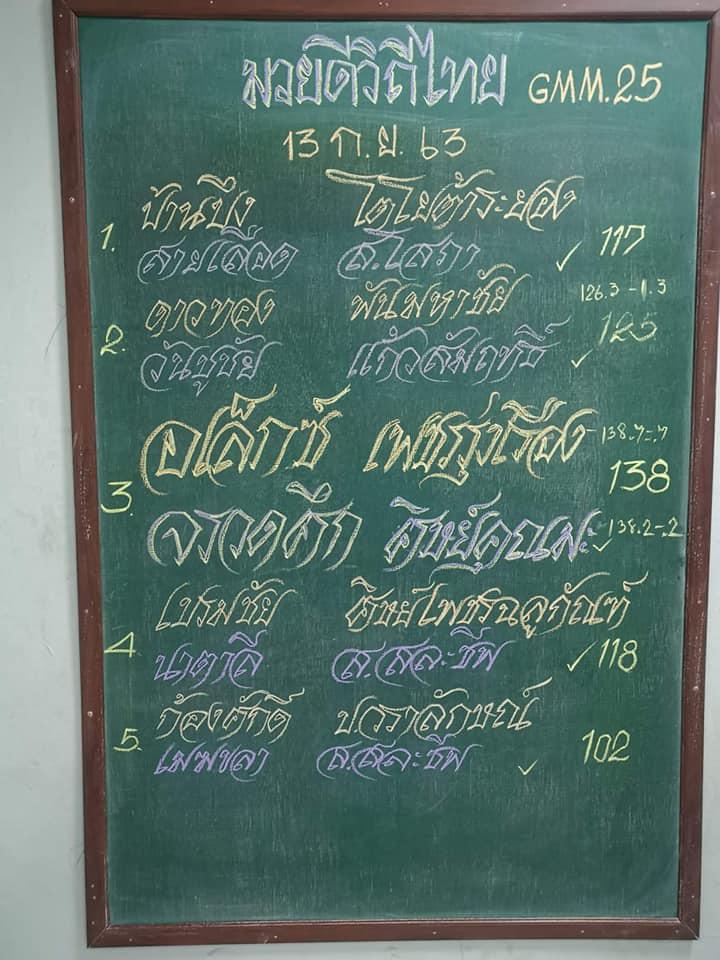 มวยดีวิถีไทย GMM.25
13 ก.ย. 63
1. บ้านบึง โตโยต้าระยอง
สายเลือด ส.โสภา ✓ 117
2. ดาวทอง พันมหาชัย 126.3-1.3
วันชูชัย แก้วสัมฤทธิ์ ✓ 125
3. อเล็กซ์ เพชรรุ่งเรือง -138.7-.7
138
จรวดศึก ศิษย์คุณมะ -138.2-.2 ✓
4. เพชรชมชัย
นาตาลี ส.สละชีพ ✓ 118
5. ก้องศักดิ์ ปวราลักษณ์
เมฆขลา ส.สละชีพ ✓ 102